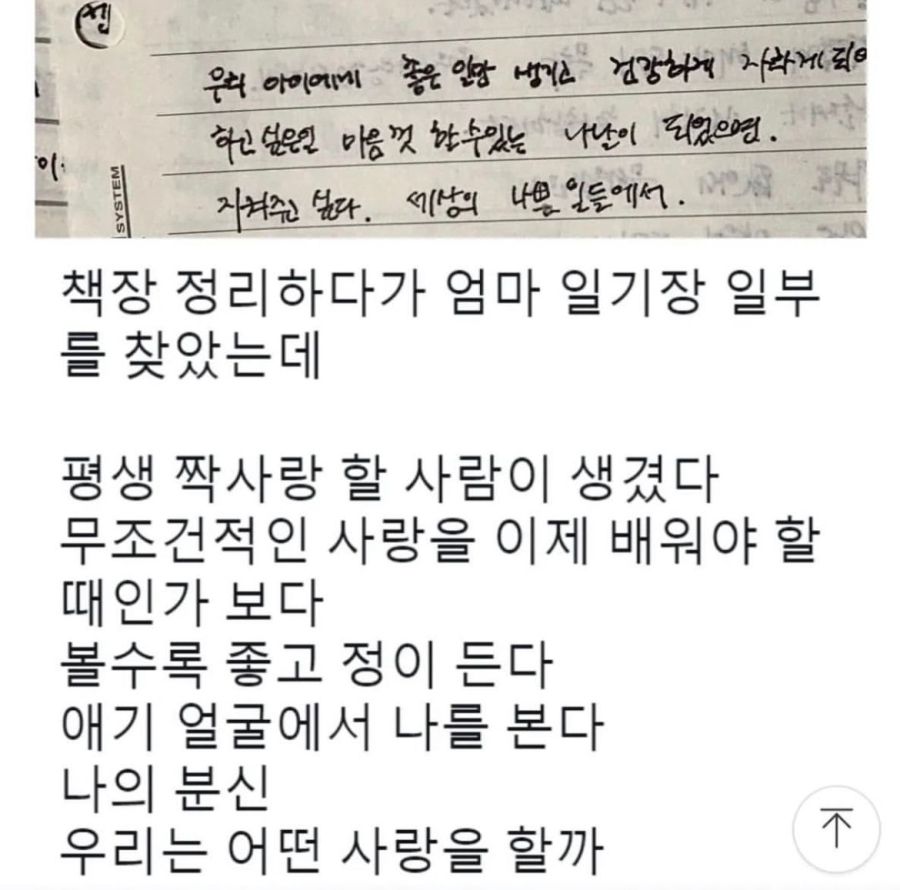 우리 아이에게 좋은 일만 생기고 건강하게 자라게 되어
하고 싶은일 마음껏 할수있는 나날이 되었으면.
지켜주고 싶다. 세상의 나쁜 일들에서.
SYSTEM
책장 정리하다가 엄마 일기장 일부
를 찾았는데
평생 짝사랑 할 사람이 생겼다
무조건적인 사랑을 이제 배워야 할
때인가 보다
볼수록 좋고 정이 든다
애기 얼굴에서 나를 본다
나의 분신
우리는 어떤 사랑을 할까